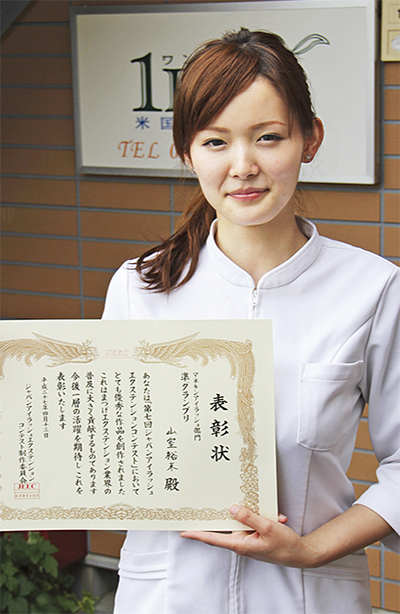 ワン
1
米国
TEL 0
表彰状
マネキンアイラッシュ部門
準グランプリ
山室裕未 殿
あなたは、第七回「ジャパンアイラッシュ
エクステンションコンテスト」において
とても優秀な作品を創作されました
これはまつげエクステンション業界の
普及に大きく貢献するものであります
今後一層の活躍を期待しこれを
表彰いたします
平成二十七年四月十三日
ジャパンアイラッシュエクステンション
コンテスト制作委員会
JEEC